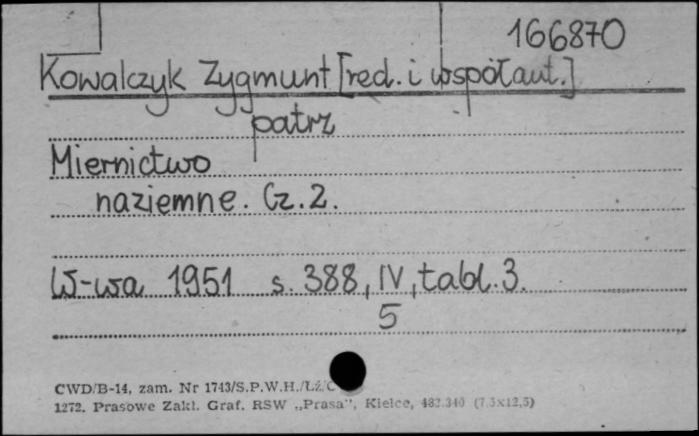 166870
Kowalczyk Zygmunt [red. i współaut.]
patrz
Miernictwo
naziemne. Cz. 2.
W-wa 1951 s. 388, IV, tabl. 3.
5
CWD/B-14, zam. Nr 1743/S.P.W.H./Łź/C
1272. Prasowe Zakł. Graf. RSW „Prasa", Kielce, 482.340 (7,5x12,5)